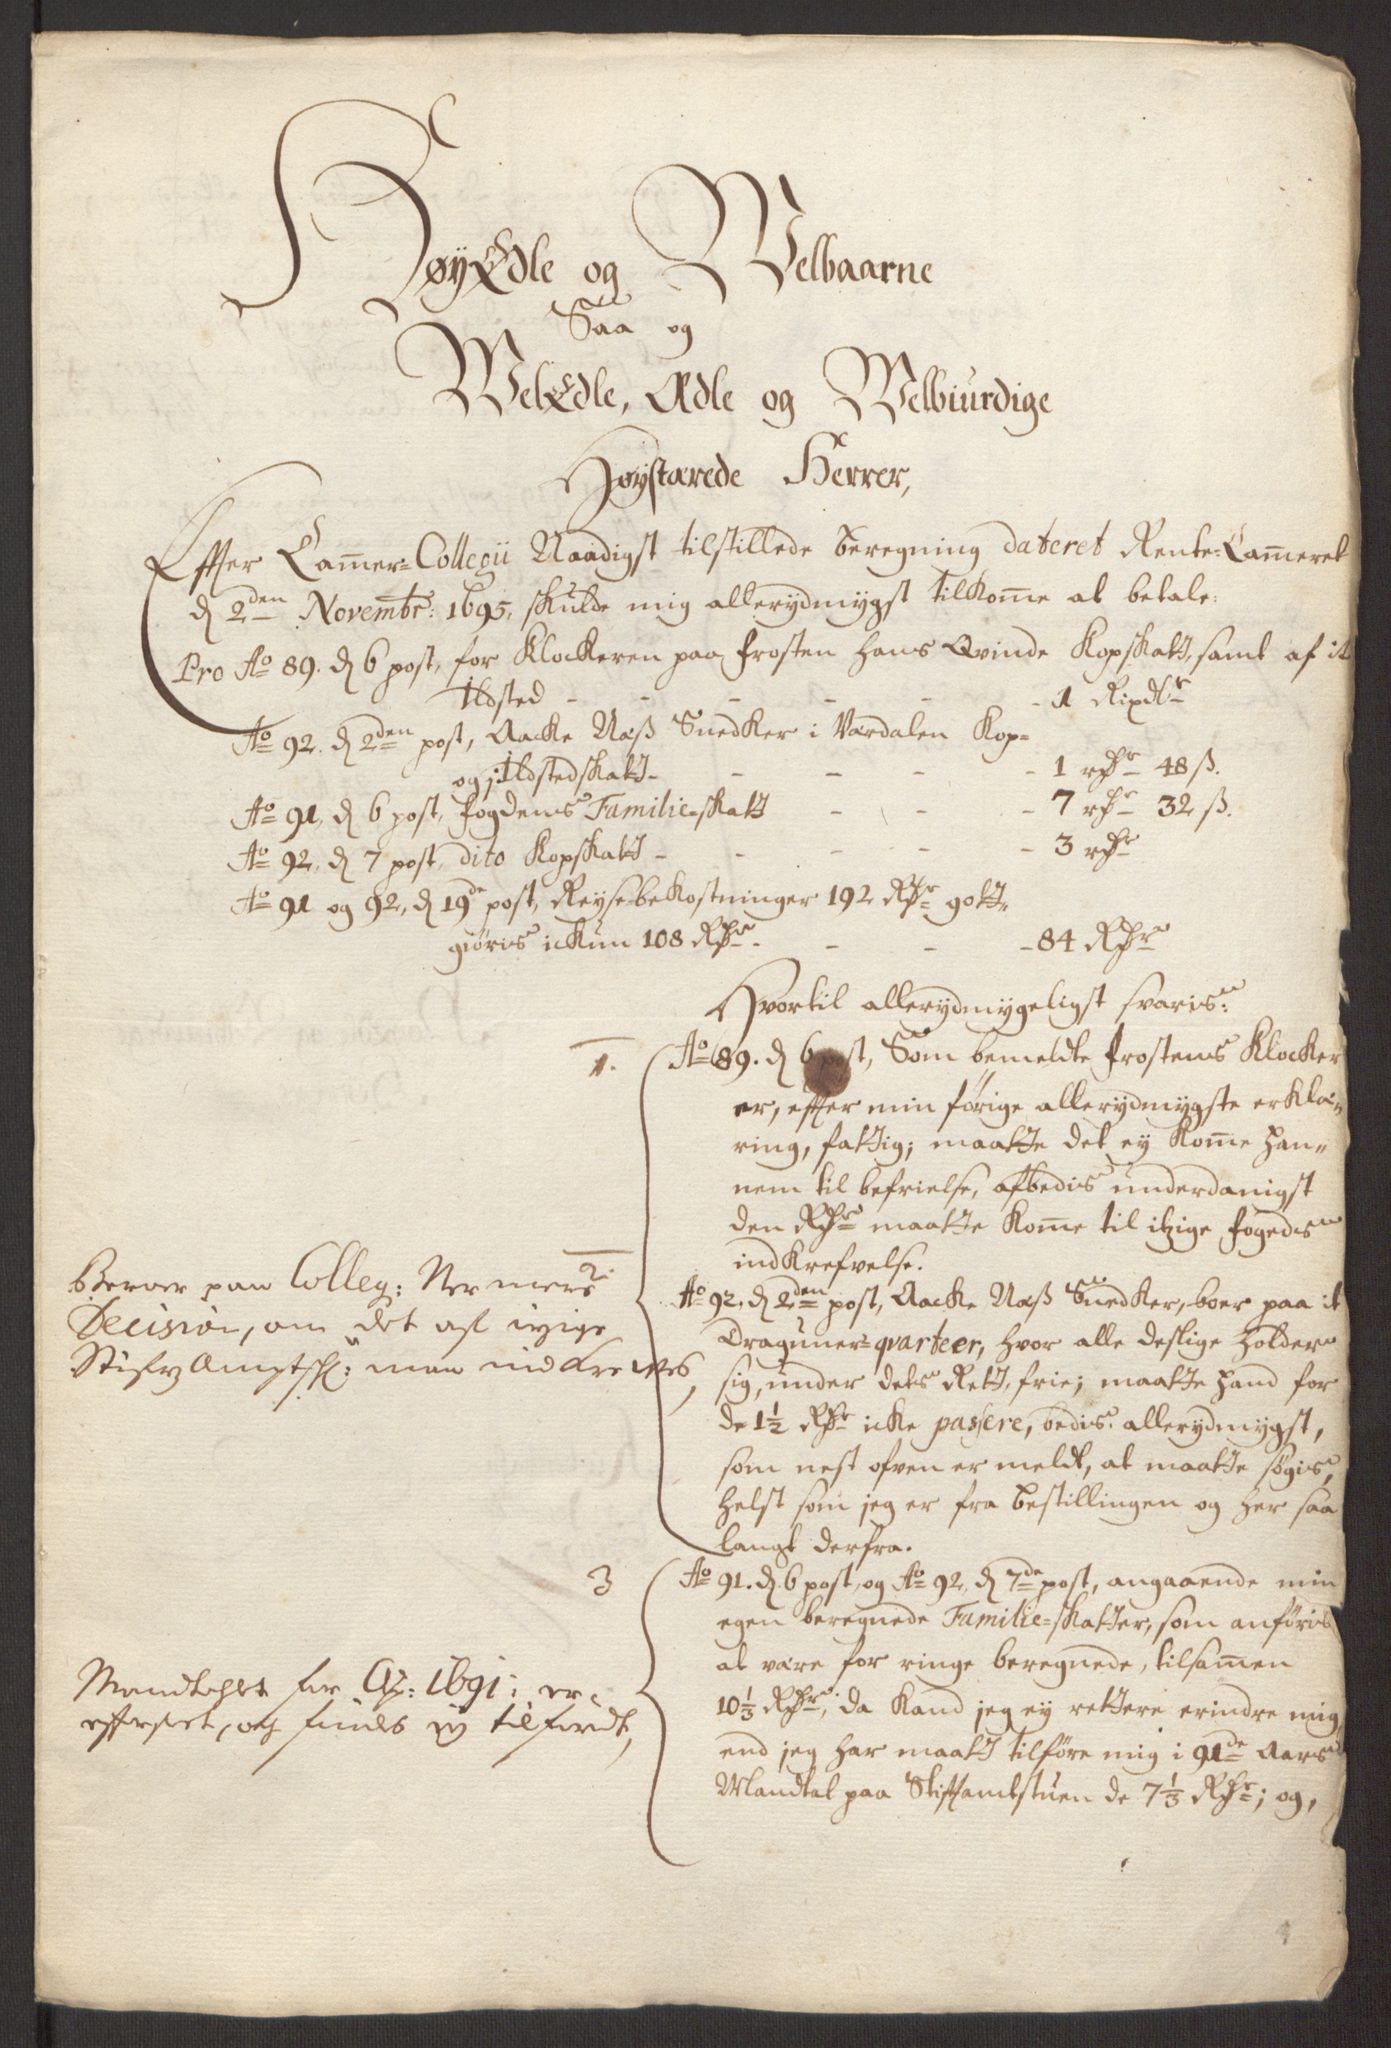 HøyEdle og Welbaarne
Saa og
WelEdle, Ædle og Welbiurdige
Høystærede Herrer,
Effter Cam̄er-Collegii Naadigst tilstillede beregning dateret Rente-Cam̄eret
d 2den Novembr: 1695, skulde mig allerydmygst tilkom̄e at betale:
Pro Ao 89. d 6 post, for Klockeren paa frosten hans Qvinde Kopskatt, samt af it
Ildsted - - - - - 1 Rixdlr
Ao 92. d 2den post, Aacke Næß Snedker i Værdalen Kop-
og Ildstedskatt - - - - 1 rdr 48 ß.
Ao 91, d 6 post, fogdens Familie-skatt - - - 7 rdr 32 ß.
Ao 92, d 7 post, dito Kopskatt - - - - - 3 rdr
Ao 91 og 92, d 19de post, Reysebekostninger 192 Rdr gott-
giøris ickun 108 Rdr - - - - 84 Rdr
Hvortil allerydmygeligst svaris:
1. Ao 89. d 6 post, Som bemeldte frostens Klocker
er, effter min förige allerydmygste erklæ-
ring, fattig; maatte det ey kom̄e han-
nem til befrielse, afbedis underdanigst
den Rdr maatte kom̄e til itzige fogeds
indkrefvelse.
2. Ao 92. d 2den post, Aacke Næß Snedker, boer paa it
Draguner-qvarteer, hvor alle deslige holder
sig, under dets Rett, frie; maatte hand for
de 1½ Rdr icke passere, bedis allerydmygst,
som nest ofven er meldt, at maatte søgis,
helst som jeg er fra bestillingen og her saa
langt derfra.
Beroer paa Colleg: Nermere
Decision, om det af itzige
Stiftz Amptsk: maa indkrefves,
3 Ao 91. d 6 post, og Ao 92, d 7de post, angaaende min
egen beregnede Familie-skatter, som anföris
at være for ringe beregnede, tilsam̄en
10⅓ Rdr; da kand jeg ey rettere erindre mig,
end jeg har maatt tilföre mig i 91de Aars
Mandtal paa Stiftamtstuen de 7⅓ Rdr; og,
Mandtahlet for Ao: 1691: er
efterseet, og findis ey tilfördt,